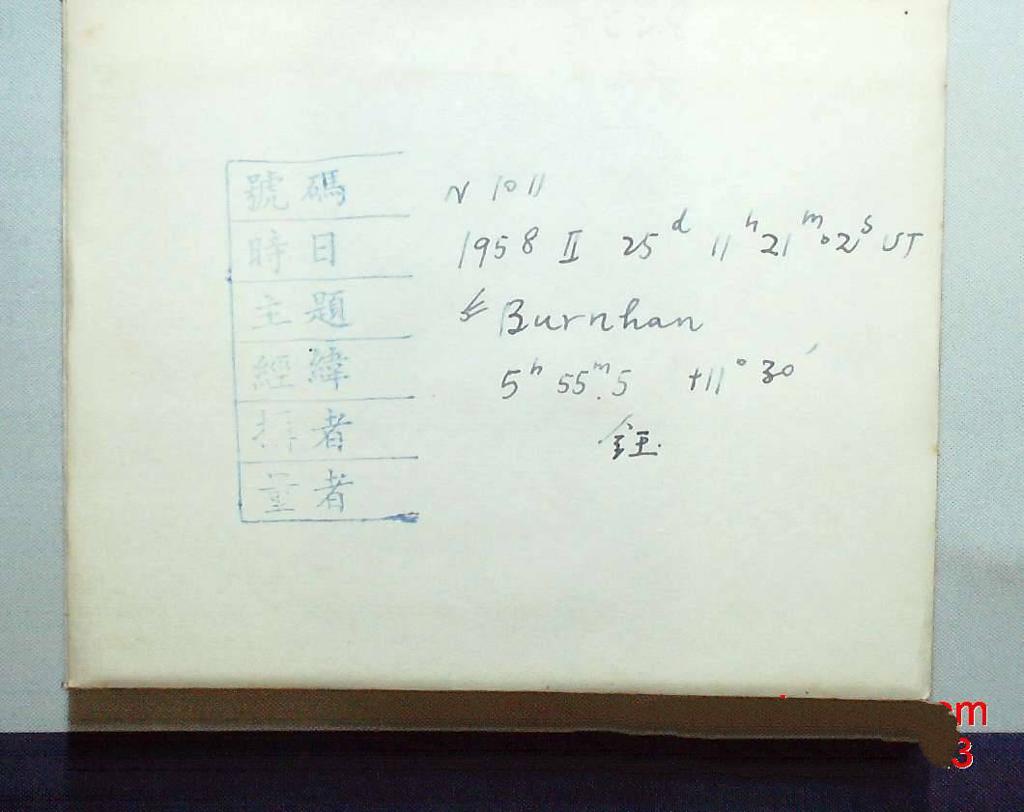 號碼 N 1011
時日 1958 II 25d 11h 21m 02s UT
主題 Burnhan
經緯 5h 55m.5 +11° 30′
者 鈺
量者